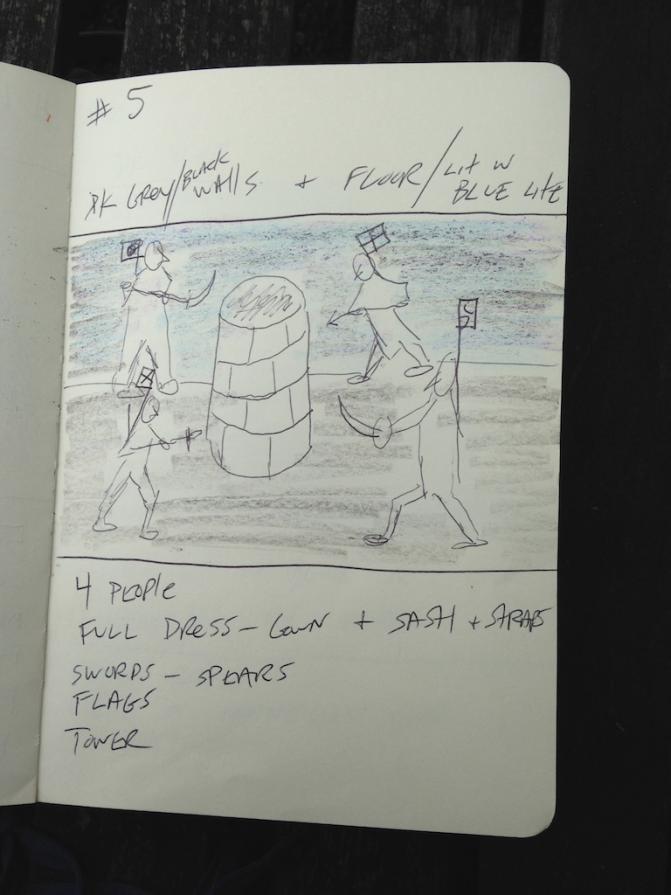 # 5
DK GREY/BLACK WALLS + FLOOR/LIT W BLUE LITE
4 PEOPLE
FULL DRESS - GOWN + SASH + STRAPS
SWORDS - SPEARS
FLAGS
TOWER